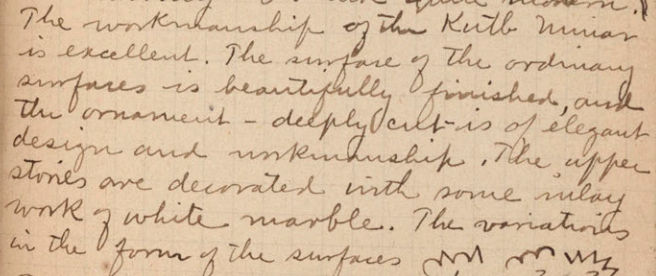 quite modern.
The workmanship of the Kutb Minar
is excellent. The surface of the ordinary
surfaces is beautifully finished, and
the ornament - deeply cut - is of elegant
design and workmanship. The upper
stories are decorated with some inlay
work of white marble. The variations
in the form of the surfaces